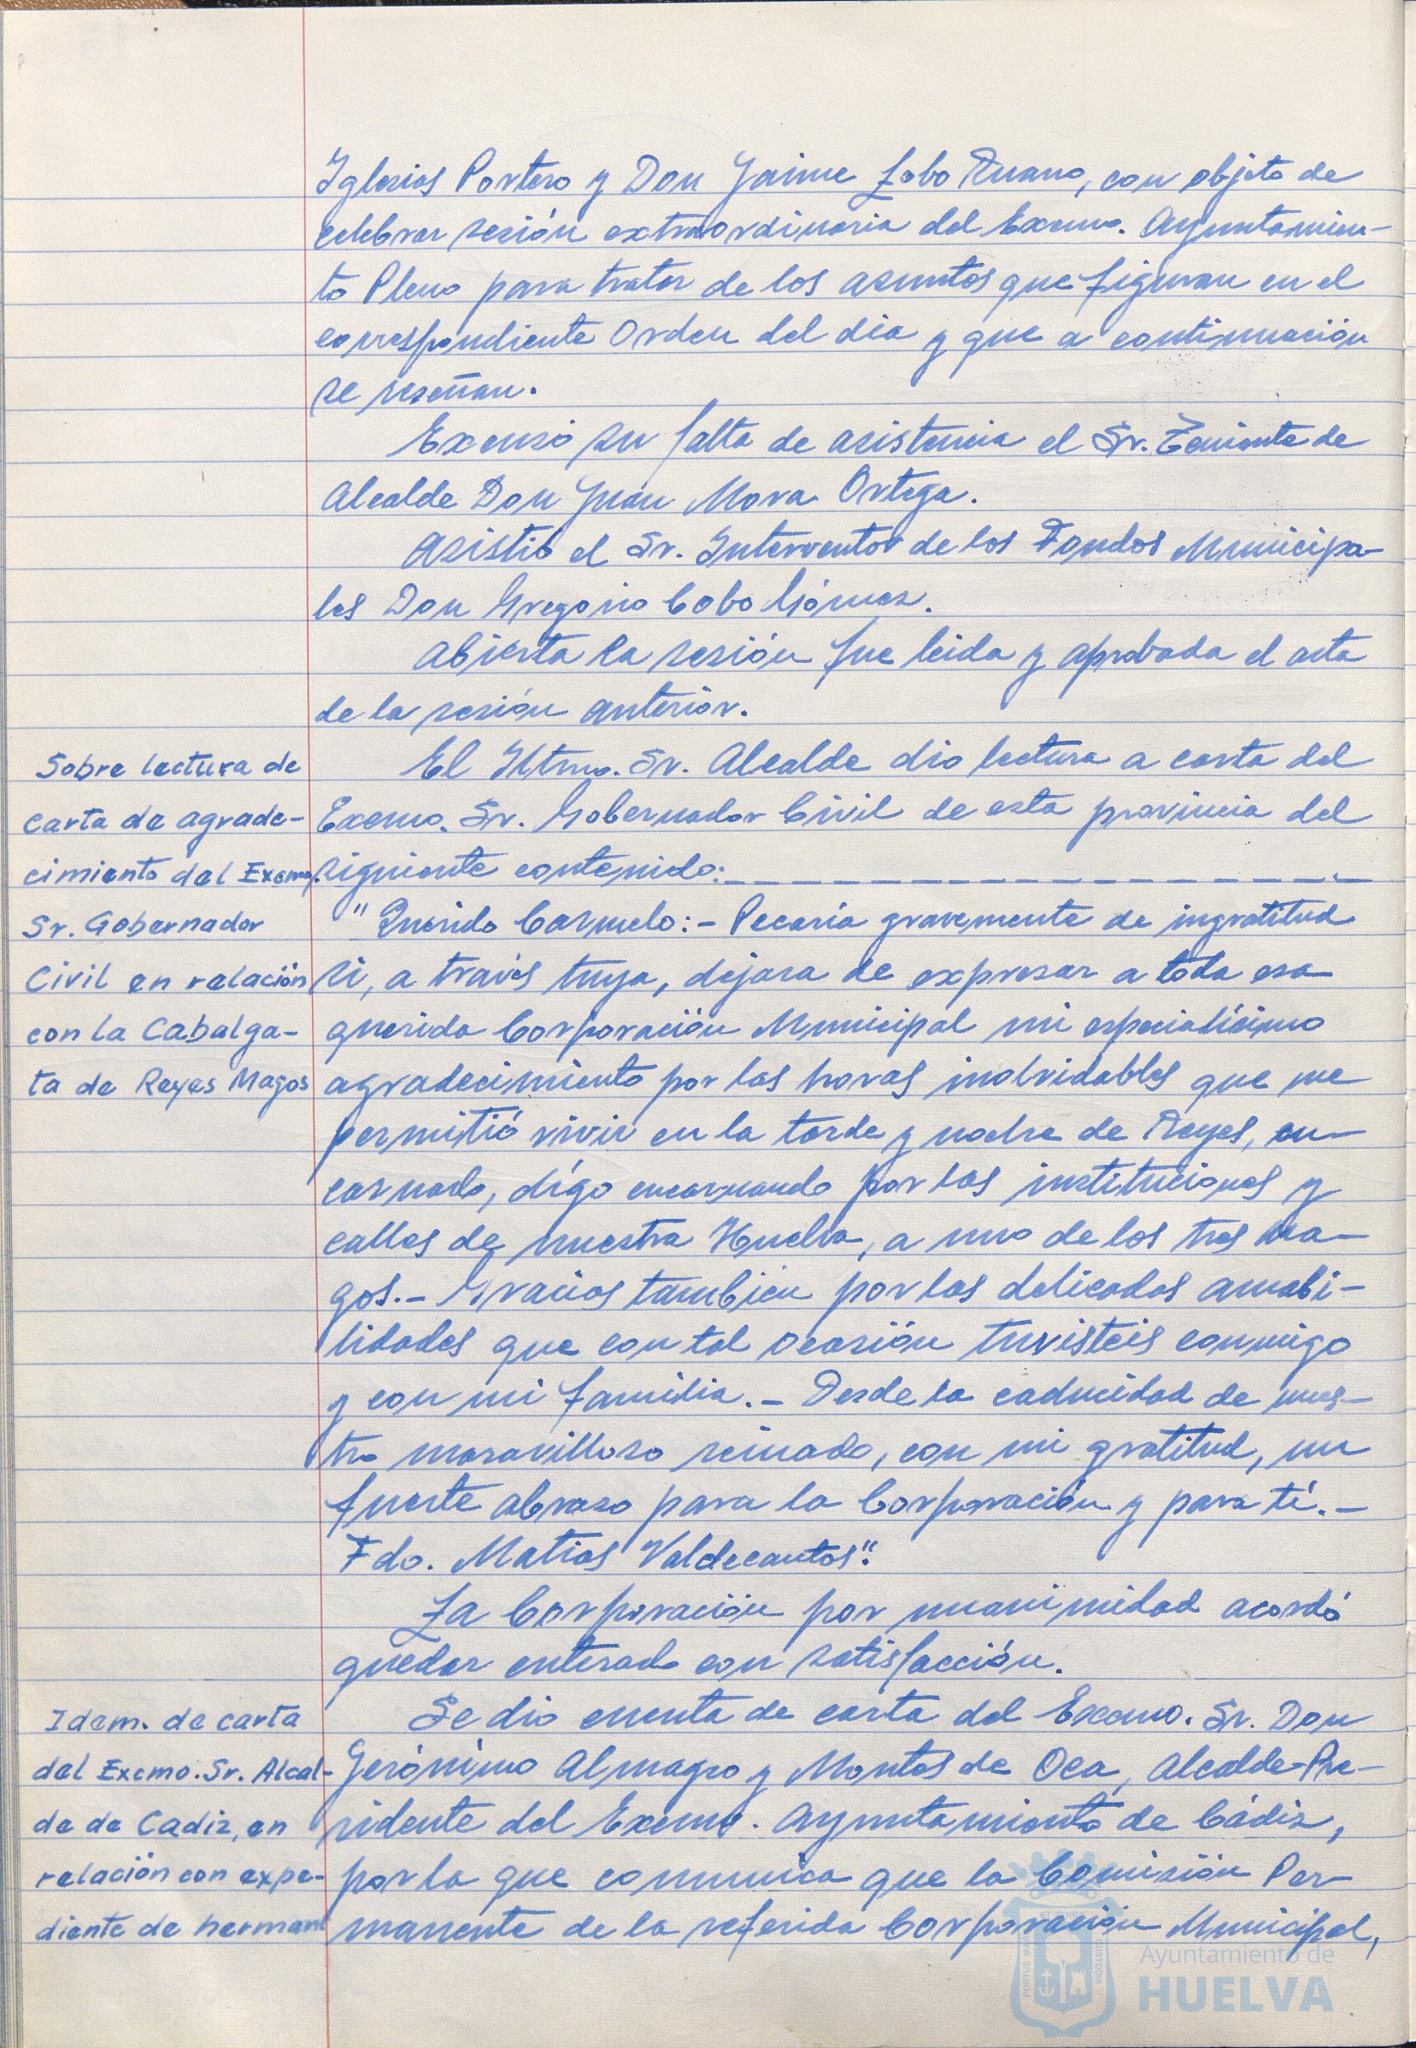 Iglesias Portero y Don Jaime Lobo Ruano, con objeto de
celebrar sesión extraordinaria del Excmo. Ayuntamien-
to Pleno para tratar de los asuntos que figuran en el
correspondiente Orden del dia y que a continuación
se reseñan.
Excusó su falta de asistencia el Sr. Teniente de
Alcalde Don Juan Mora Ortega.
Asistió el Sr. Interventor de los Fondos Municipa-
les Don Gregorio Cobo Gómez.
Abierta la sesión fue leida y aprobada el acta
de la sesión anterior.
Sobre lectura de
carta de agrade-
cimiento del Excmo.
Sr. Gobernador
Civil en relación
con la Cabalga-
ta de Reyes Magos
El Iltmo. Sr. Alcalde dio lectura a carta del
Excmo. Sr. Gobernador Civil de esta provincia del
siguiente contenido:
"Querido Carmelo:- Pecaría gravemente de ingratitud
si, a través tuya, dejara de expresar a toda esa
querida Corporación Municipal mi especialísimo
agradecimiento por las horas inolvidables que me
permitió vivir en la tarde y noche de Reyes, en-
carnado, dígo encarnando por las instituciones y
calles de nuestra Huelva, a uno de los tres Ma-
gos.- Gracias tambien por las delicadas amabi-
lidades que con tal ocasión tuvisteis conmigo
y con mi familia.- Desde la caducidad de nues-
tro maravilloso reinado, con mi gratitud, un
fuerte abrazo para la Corporación y para tí.-
Fdo. Matias Valdecantos".
La Corporación por unanimidad acordó
quedar enterada con satisfacción.
Idem. de carta
del Excmo. Sr. Alcal-
de de Cadiz, en
relación con expe-
diente de herman
Se dio cuenta de carta del Excmo. Sr. Don
Gerónimo Almagro y Montes de Oca, Alcalde-Pre-
sidente del Excmo. Ayuntamiento de Cádiz,
por la que comunica que la Comisión Per-
manente de la referida Corporación Municipal,
Ayuntamiento de
HUELVA